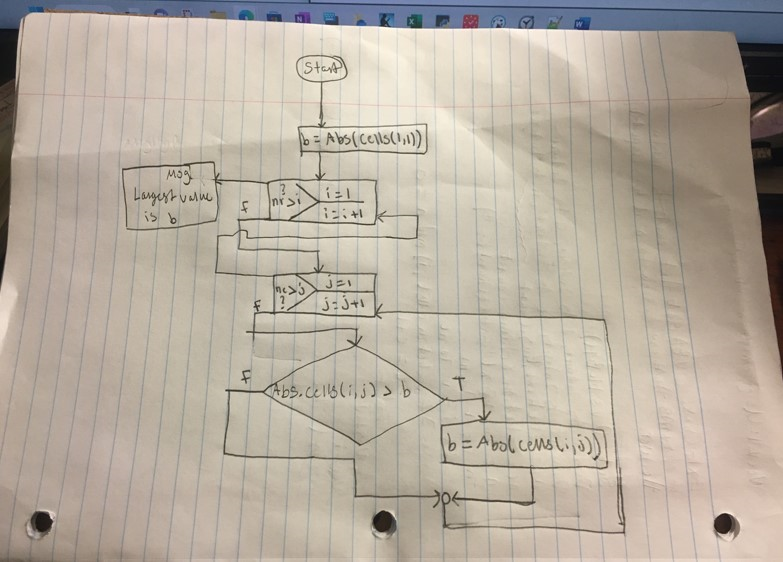 Start
b = Abs(cells(1,1))
Msg
Largest value
is b
?
nr>i
i=1
i=i+1
F
nc>j
?
j=1
j=j+1
F
F
Abs.cells(i,j) > b
T
b = Abs(cells(i,j))